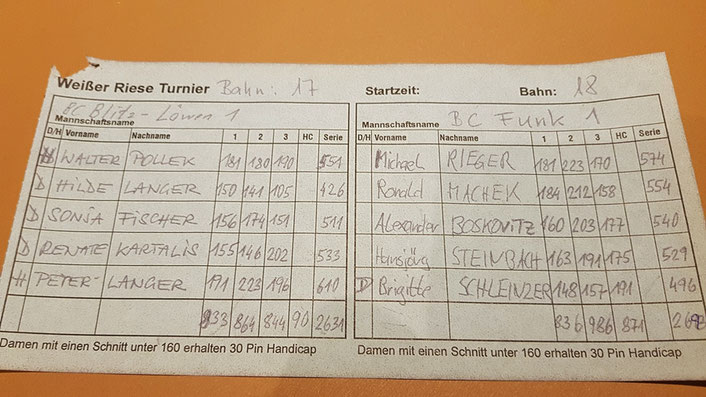 Weißer Riese Turnier Bahn: 17
BC Blitz-Löwen 1
Mannschaftsname
D/H Vorname Nachname 1 2 3 HC Serie
H WALTER POLLEK 181 180 190 551
D HILDE LANGER 150 141 105 426
D SONJA FISCHER 156 174 151 511
D RENATE KARTALIS 155 146 202 533
H PETER LANGER 191 223 196 610
833 864 844 90 2631
Damen mit einem Schnitt unter 160 erhalten 30 Pin Handicap
Startzeit: Bahn: 18
BC Funk 1
Mannschaftsname
D/H Vorname Nachname 1 2 3 HC Serie
Michael RIEGER 181 223 170 574
Ronald MACHEK 184 212 158 554
Alexander BOSKOVITZ 160 203 177 540
Hansjörg STEINBACH 163 191 175 529
D Brigitte SCHLEINZER 148 157 191 496
836 986 871
Damen mit einem Schnitt unter 160 erhalten 30 Pin Handicap